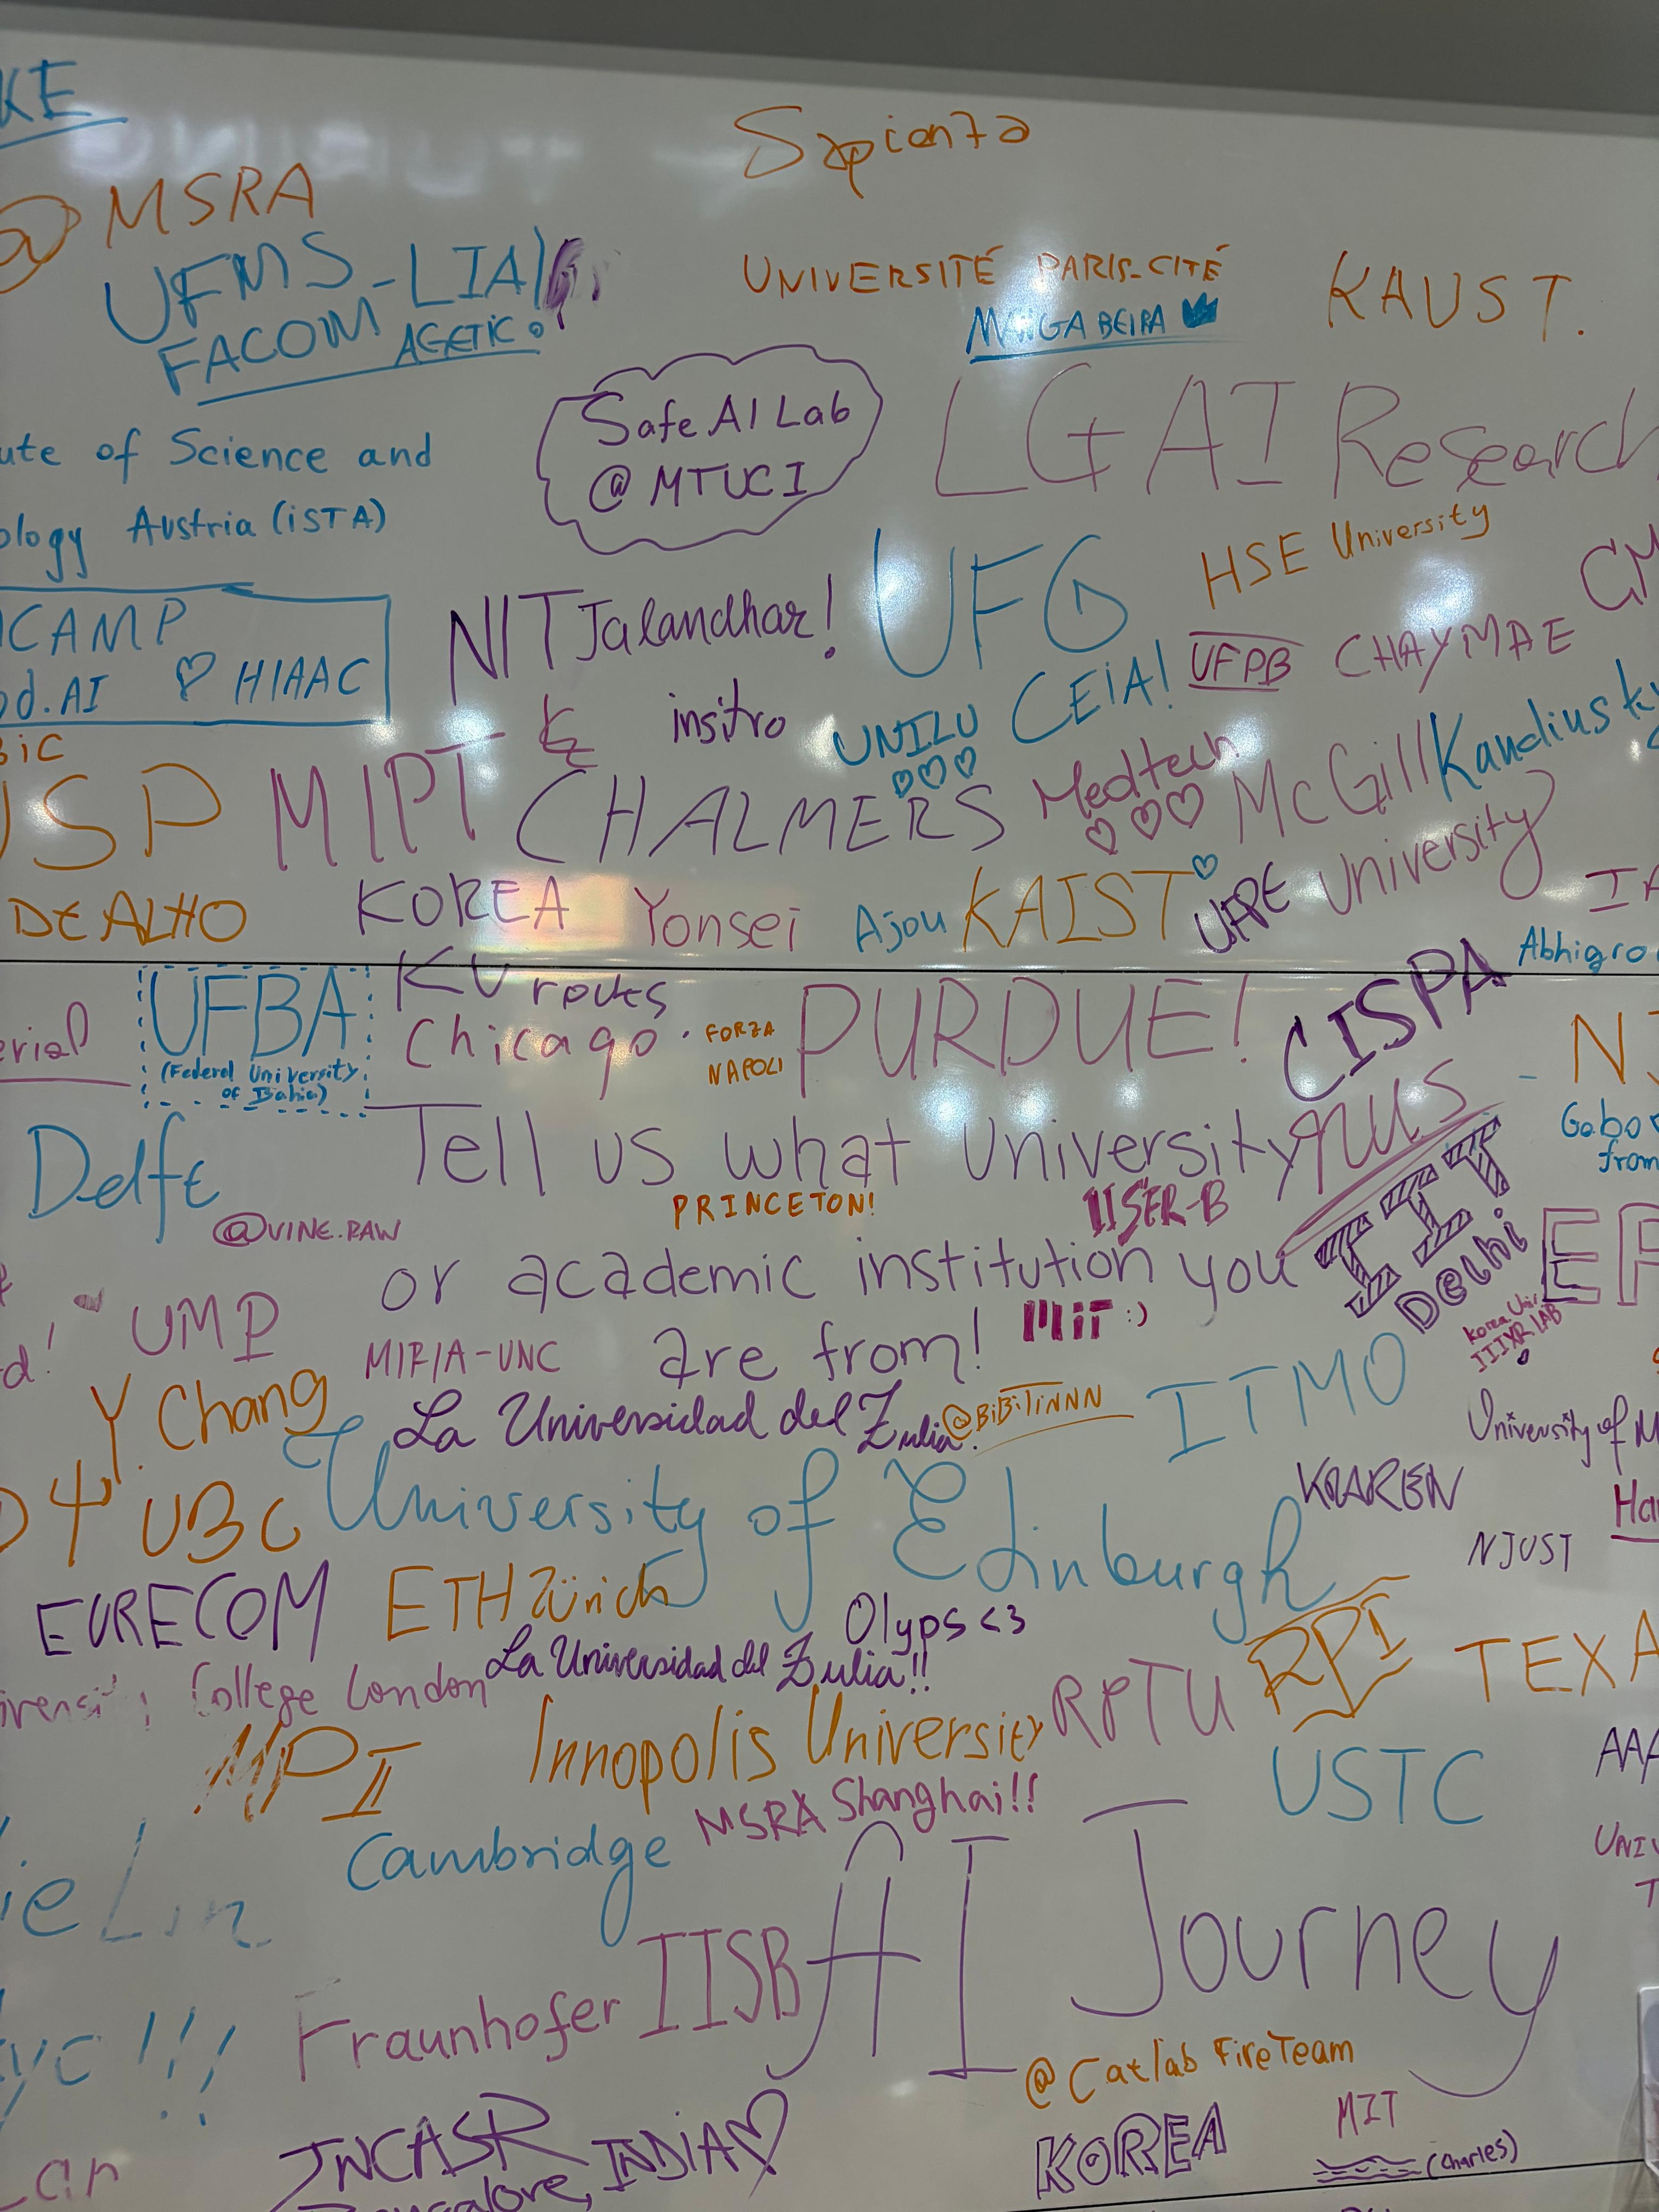 KE
Sapienza
@ MSRA
UFMS-LIA
FACOM AGETIC
UNIVERSITÉ PARIS-CITÉ
MANGABEIRA
KAUST.
Safe AI Lab
@ MTUCI
LG AI Research
ute of Science and
ology Austria (iSTA)
HSE University
UFG
CEIA!
CAMP
od.AI ♡ HIAAC
NIT Jalandhar!
UFPB
CHAYMAE
insitro
UNILU
♡♡♡
Medtech
♡♡♡
McGill
University
Kandiusky
BiC
USP
MIPT
CHALMERS
DE ALHO
KOREA
Yonsei
Ajou
KAIST
UFPE
CISPA
Abhigro
erial
UFBA
(Federal University
of Bahia)
KU routes
Chicago.
FORZA
NAPOLI
PURDUE!
NUS
Delft
Tell us what University
PRINCETON!
IISER-B
@VINE.RAW
or academic institution you
IIT
Delhi
Gabo
from
UMP
MIPIA-UNC
are from!
MiT :)
Korea Univ
IIIXR LAB
Y. Chang
La Universidad del Zulia.
@BiBiTiNNN
ITMO
University of M
UBC
University of Edinburgh
KAREN
NJUST
Ha
EURECOM
ETH Zürich
Olyps <3
College London
La Universidad del Zulia!!
RPTU
RPI
TEXA
MPI
Innopolis University
USTC
AAA
Cambridge
MSRA Shanghai!!
UNIV
T
ie Lin
AI Journey
Fraunhofer IISB
yc!!!
@ Catlab FireTeam
JNCASR
Bangalore, INDIA ♡
KOREA
MIT
(Charles)